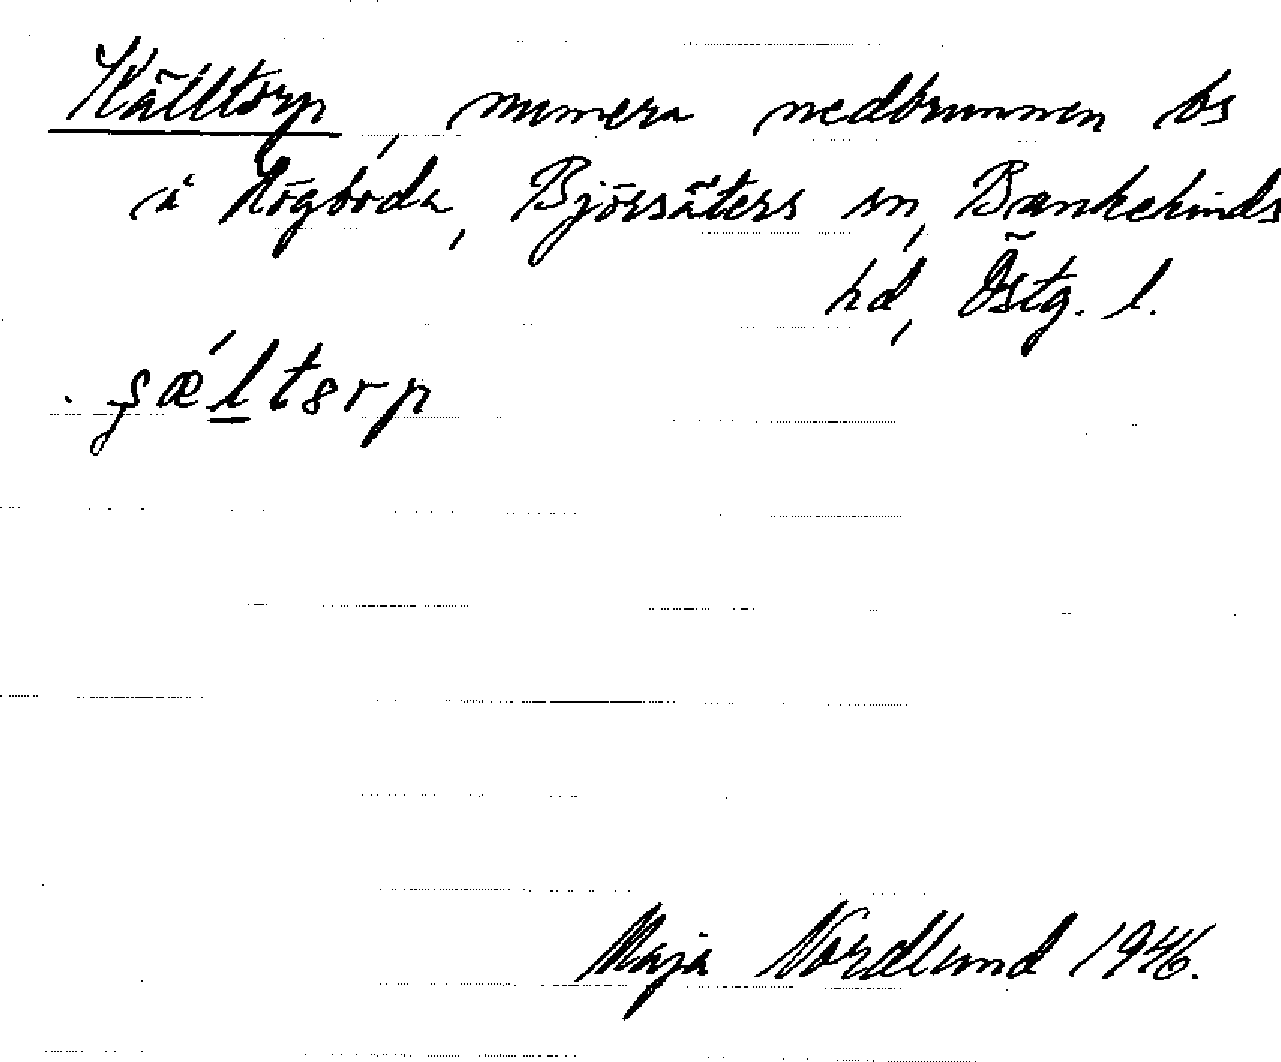 Källtorp, numera nedbrunnen bs
å Högboda, Björsäters sn, Bankekinds
hd, Östg. l.
Maja Nordlund 1946.